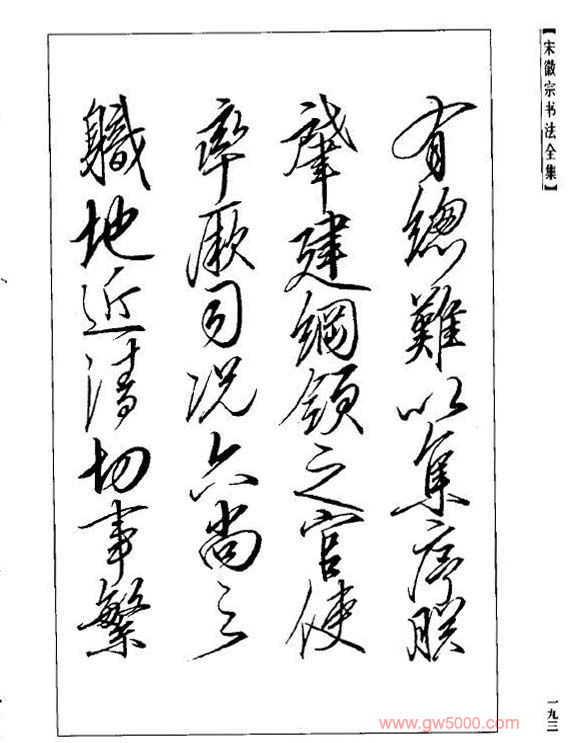 【宋徽宗书法全集】
有總難以集序朕
肇建綱領之官使
率厥司况六尚之
軄地近清切事繁
一九三
www.gw5000.com